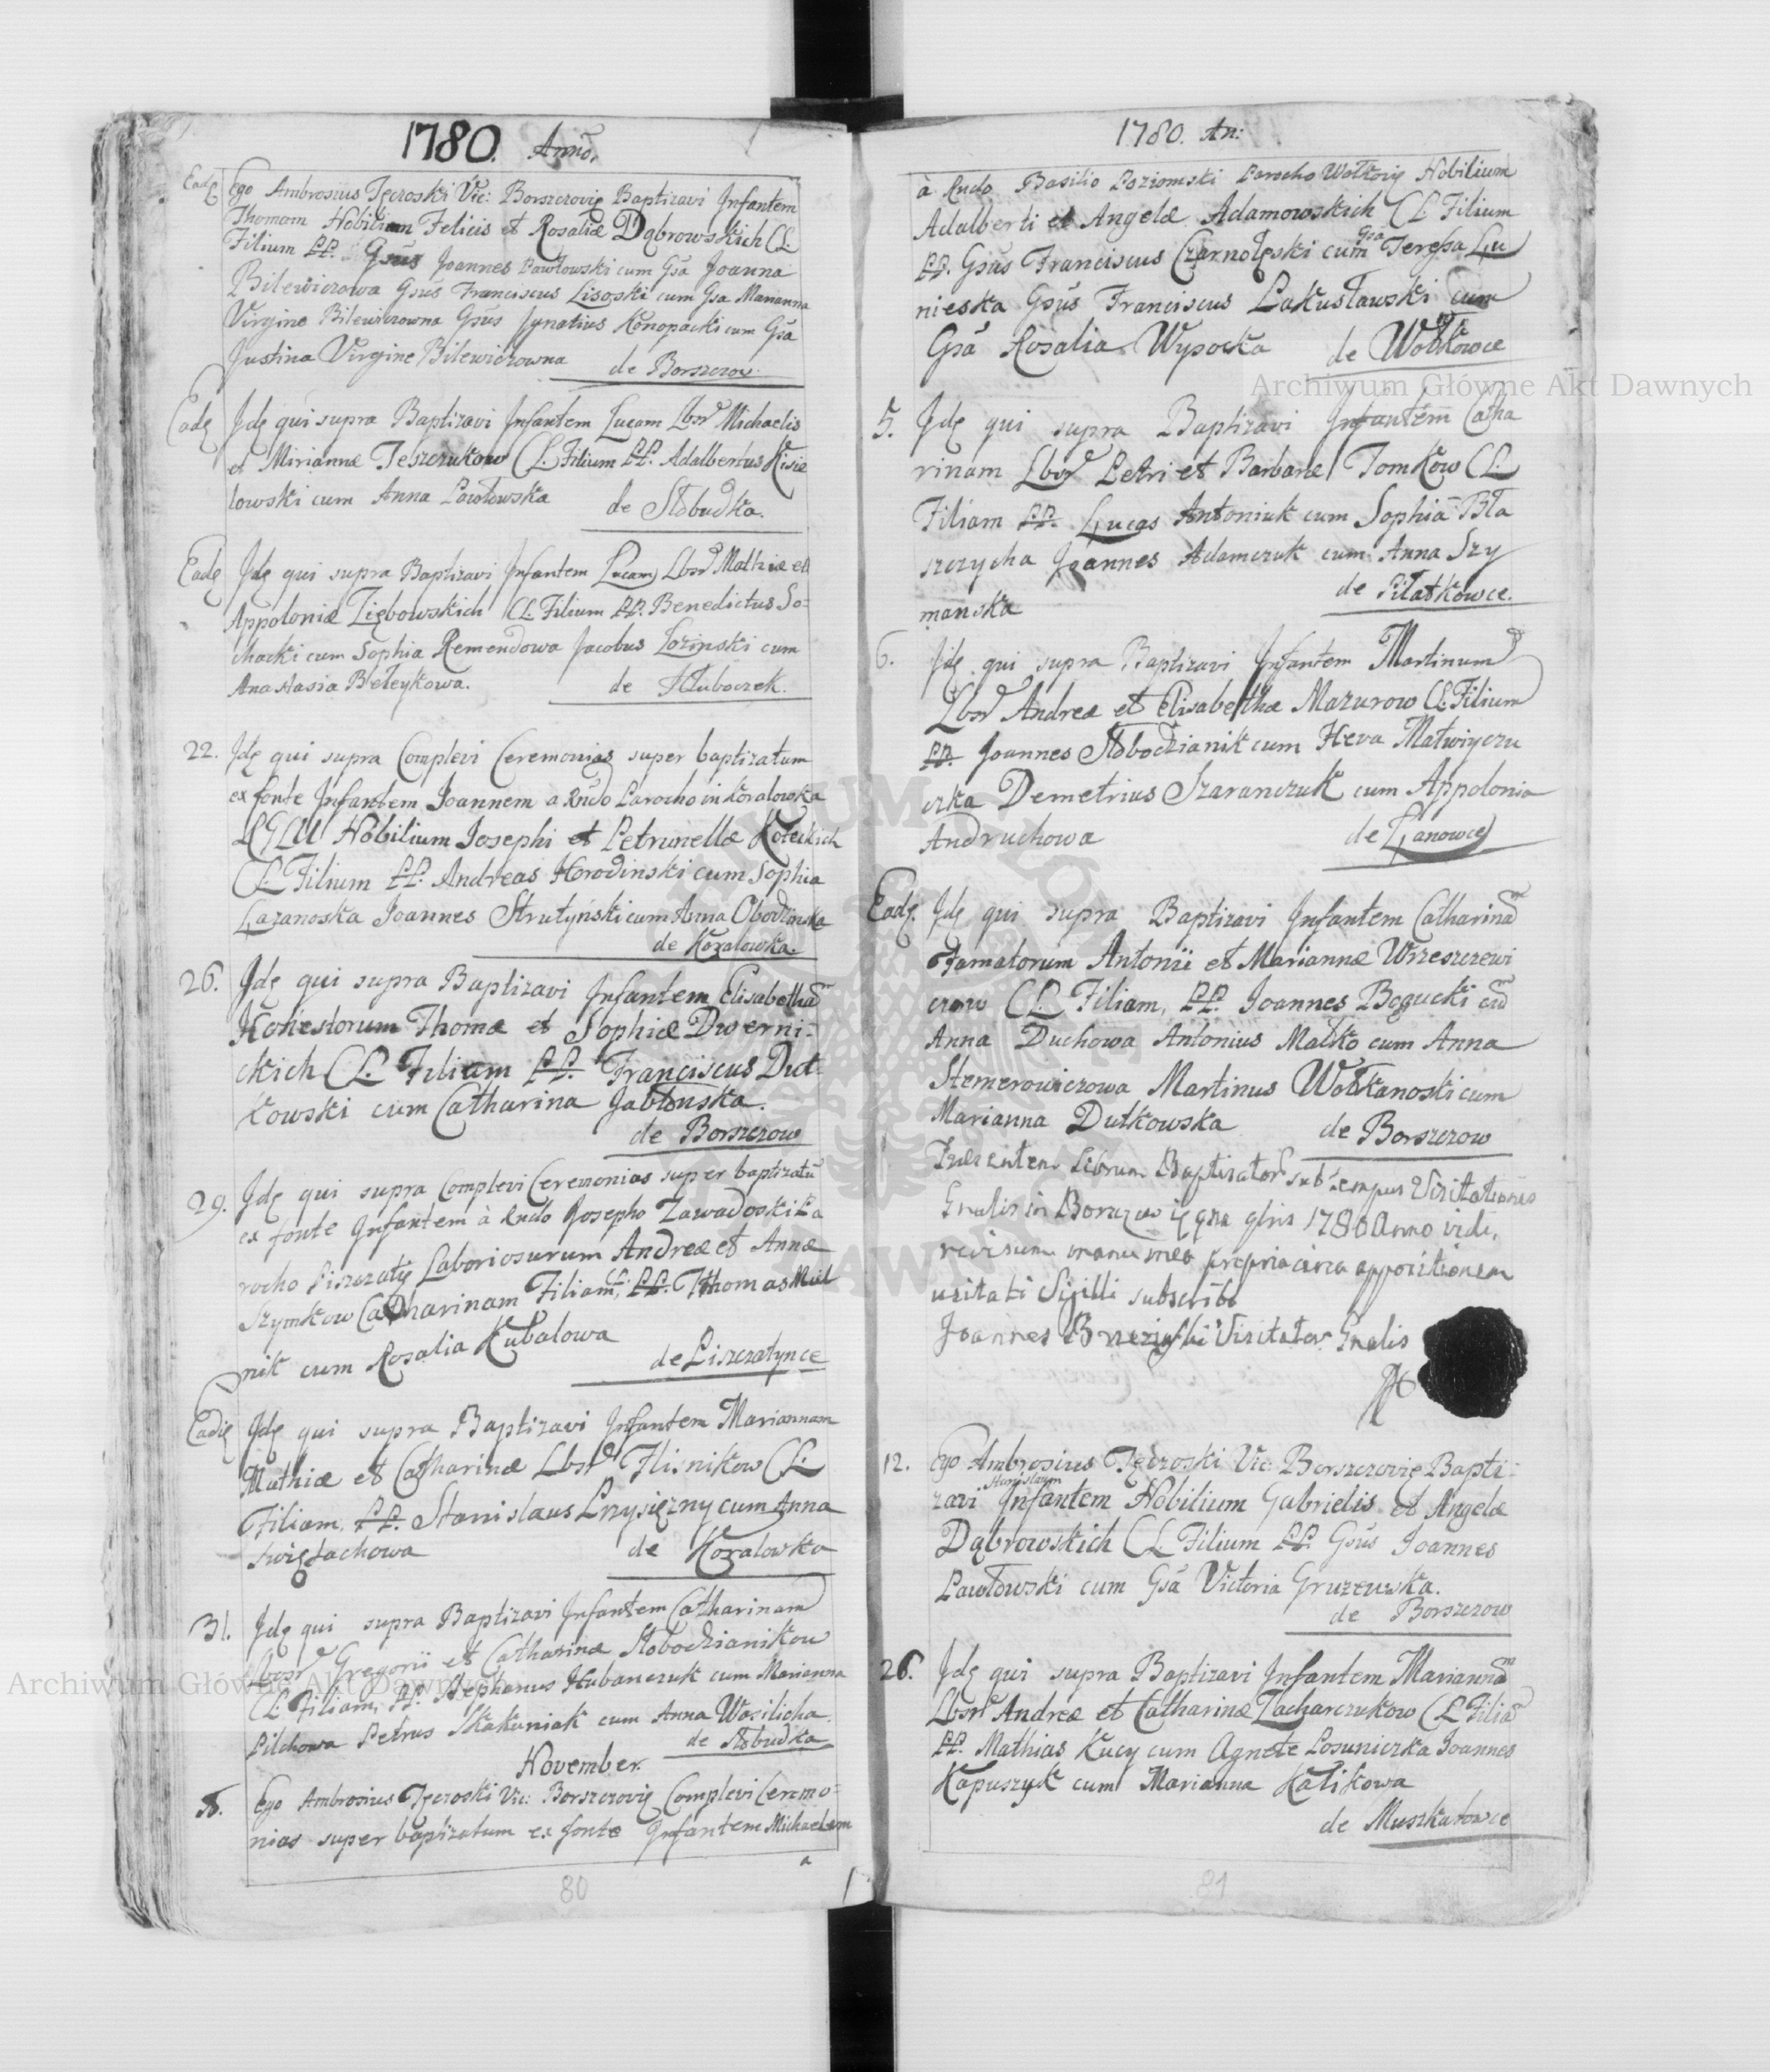 1780. Anno.
Eadę Ego Ambrosius Tęczoski Vic: Borszczovię Baptizavi Infantem
Thomam Nobilium Felicis et Rosaliæ Dąbrowskich CL.
Filium PP. Gsus Joannes Pawłowski cum Gsa Joanna
Bilewiczowa Gsus Franciscus Lisoski cum Gsa Marianna
Virgine Bilewiczowna Gsus Ignatius Konopacki cum Gsa
Justina Virgine Bilewiczowna de Borszczow.
Eadę Idę qui supra Baptizavi Infantem Lucam Lbsr Michaelis
et Miriannæ Teszczukow CL. Filium PP. Adalbertus Kisie
lowski cum Anna Pawłowska de Słobudka.
Eadę Idę qui supra Baptizavi Infantem Lucam Lbsr Mathiæ et
Appoloniæ Ziębowskich CL. Filium PP. Benedictus So-
chacki cum Sophia Remendowa Jacobus Łozinski cum
Anastasia Beleykowa. de Hłuboczek.
22. Idę qui supra Complevi Ceremonias super baptizatum
ex fonte Infantem Joannem a Rndo Parocho in Kozalowka
Nobilium Josephi et Petrunellæ Koteckich
CL. Filium PP. Andreas Horodinski cum Sophia
Łazanoska Joannes Strutyński cum Anna Obodzinska
de Kozalowka.
26. Idę qui supra Baptizavi Infantem Elisabetham
Honestorum Thomæ et Sophiæ Dwerni-
ckich CL. Filiam PP. Franciscus Dut-
kowski cum Catharina Jabłonska.
de Borszczow
29. Idę qui supra Complevi Ceremonias super baptizatu
ex fonte Infantem à Rndo Josepho Zawadoski Pa
rocho Piszczatyę Laboriosurum Andreæ et Annæ
Szymkow Catharinam Filiam, CL. PP. Thomas Miel
nik cum Rosalia Kubalowa
de Piszczatynce
Eadię Idę qui supra Baptizavi Infantem Mariannam
Mathiæ et Catharinæ Lbsr Hlisnikow CL.
Filiam, PP. Stanislaus Przysięzny cum Anna
Swięjachowa de Kozalowka
31. Idę qui supra Baptizavi Infantem Catharinam
Lbosr Gregorii et Catharinæ Słobodzianikow
CL Filiam, PP. Stephanus Hubanczuk cum Marianna
Pilchowa Petrus Skakuniak cum Anna Wasilicha.
de Słobudka
November.
5. Ego Ambrosius Tęczoski Vic: Borszczovię Complevi Ceremo-
nias super baptizatum ex fonte Infantem Michaelem
a
80
1780. An:
à Rndo Basilio Poziomski Parocho Wołkovię Nobilium
Adalberti et Angelæ Adamowskich CL Filium
PP. Gsus Franciscus Czarnołęski cum Gsa Teressa Łu
nieska Gsus Franciscus Lakustawski cum
Gsa Rosalia Wysocka de Wołkowce
5. Idę qui supra Baptizavi Infantem Catha
rinam Lbosr Petri et Barbaræ Tomkow CL.
Filiam PP. Lucas Antoniuk cum Sophia Bła
szczycha Joannes Adamczuk cum Anna Szy
manska de Piłatkowce.
6. Idę qui supra Baptizavi Infantem Martinum
Lbsr Andreæ et Elisabethæ Mazurow CL Filium
PP. Joannes Słobodzianik cum Heva Matwiyczu
czka Demetrius Szaranczuk cum Appolonia
Andruchowa de Łanowce
Eadę. Idę qui supra Baptizavi Infantem Catharinam
Famatorum Antonii et Mariannæ Wrzeszczewi
czow CL. Filiam, PP. Joannes Bogucki cum
Anna Duchowa Antonius Małko cum Anna
Stemerowiczowa Martinus Wołkanoski cum
Marianna Dutkowska de Borszczow
Præsentem Librum Baptisator sub tempus Visitationis
Gnalis in Borszczow 1780 Anno vidi,
revisum manu mea propria circa appositionem
usitati Sigilli subscribo
Joannes Brzeziński Visitator Gnalis
12. Ego Ambrosius Tęczoski Vic: Borszczovię Bapti-
zavi Stanislaum Infantem Nobilium Gabrielis et Angelæ
Dąbrowskich CL Filium PP. Gsus Joannes
Pawłowski cum Gsa Victoria Gruzewska.
de Borszczow
26. Idę qui supra Baptizavi Infantem Mariannam
Lbsr Andreæ et Catharinæ Zacharczukow CL Filia
PP. Mathias Kucy cum Agnete Posuniczka Joannes
Kapuszyk cum Marianna Kalikowa
de Muszkatowce
81
Archiwum Główne Akt Dawnych
Archiwum Główne Akt Dawnych